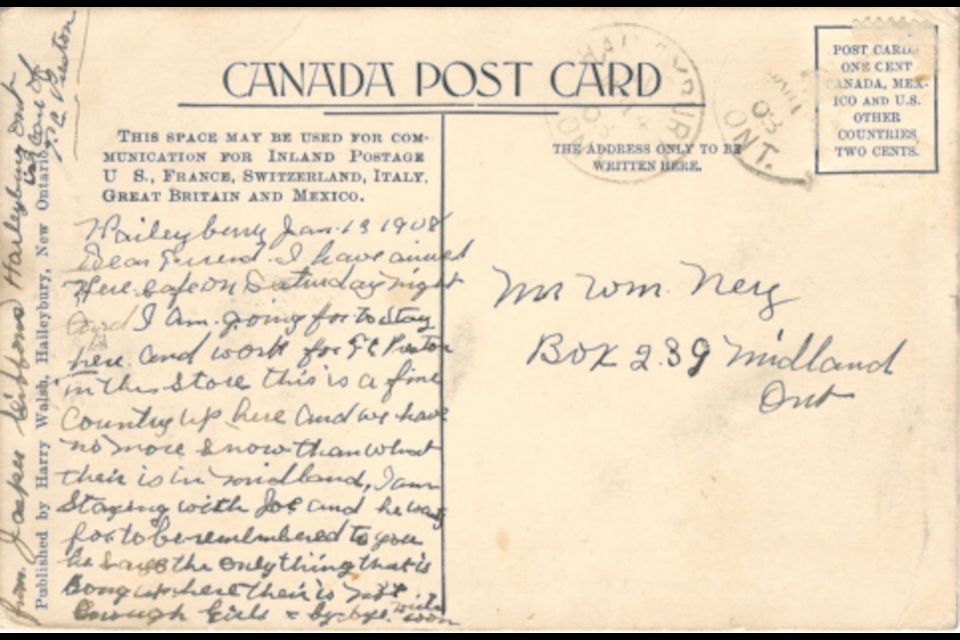 CANADA POST CARD
THIS SPACE MAY BE USED FOR COM-
MUNICATION FOR INLAND POSTAGE
U S., FRANCE, SWITZERLAND, ITALY,
GREAT BRITAIN AND MEXICO.
THE ADDRESS ONLY TO BE
WRITTEN HERE.
POST CARD
ONE CENT
CANADA, MEX-
ICO AND U.S.
OTHER
COUNTRIES
TWO CENTS.
HAILEYBURY
14
08
ONT
08
ONT.
Haileybury Jan. 13 1908
Dear Friend. I have arrived
Here safe on Saturday night
and I am going for to stay
here. and work for T C Preston
in the Store this is a fine
Country up here and we have
no more snow than what
their is in midland, I am
Staying with Joe and he wants
for to be remembered to you
he says the only thing that is
up here their is not
Enough Girls by bye. write soon
Mr Wm. Ney
Box 239 Midland
Ont
from. Jasper Gibbons Haileybury Ont
in Care of
T. C. Preston
Published by Harry Walsh, Haileybury, New Ontario